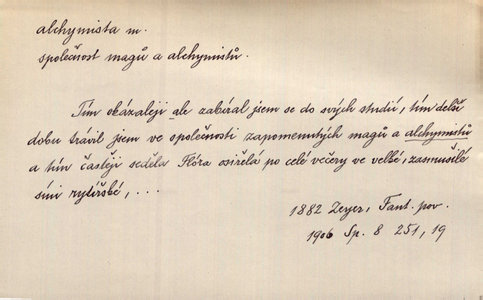 alchymista m.
společnost magů a alchymistů.
Tím okázaleji ale zabíral jsem se do svých studií, tím delší
dobu trávil jsem ve společnosti zapomenutých magů a alchymistů
a tím častěji seděla Flóra osiřelá po celé večery ve velké, zasmušilé
síni rytířské, ...
1882 Zeyer, Fant. pov.
1906 Sp. 8 251, 19